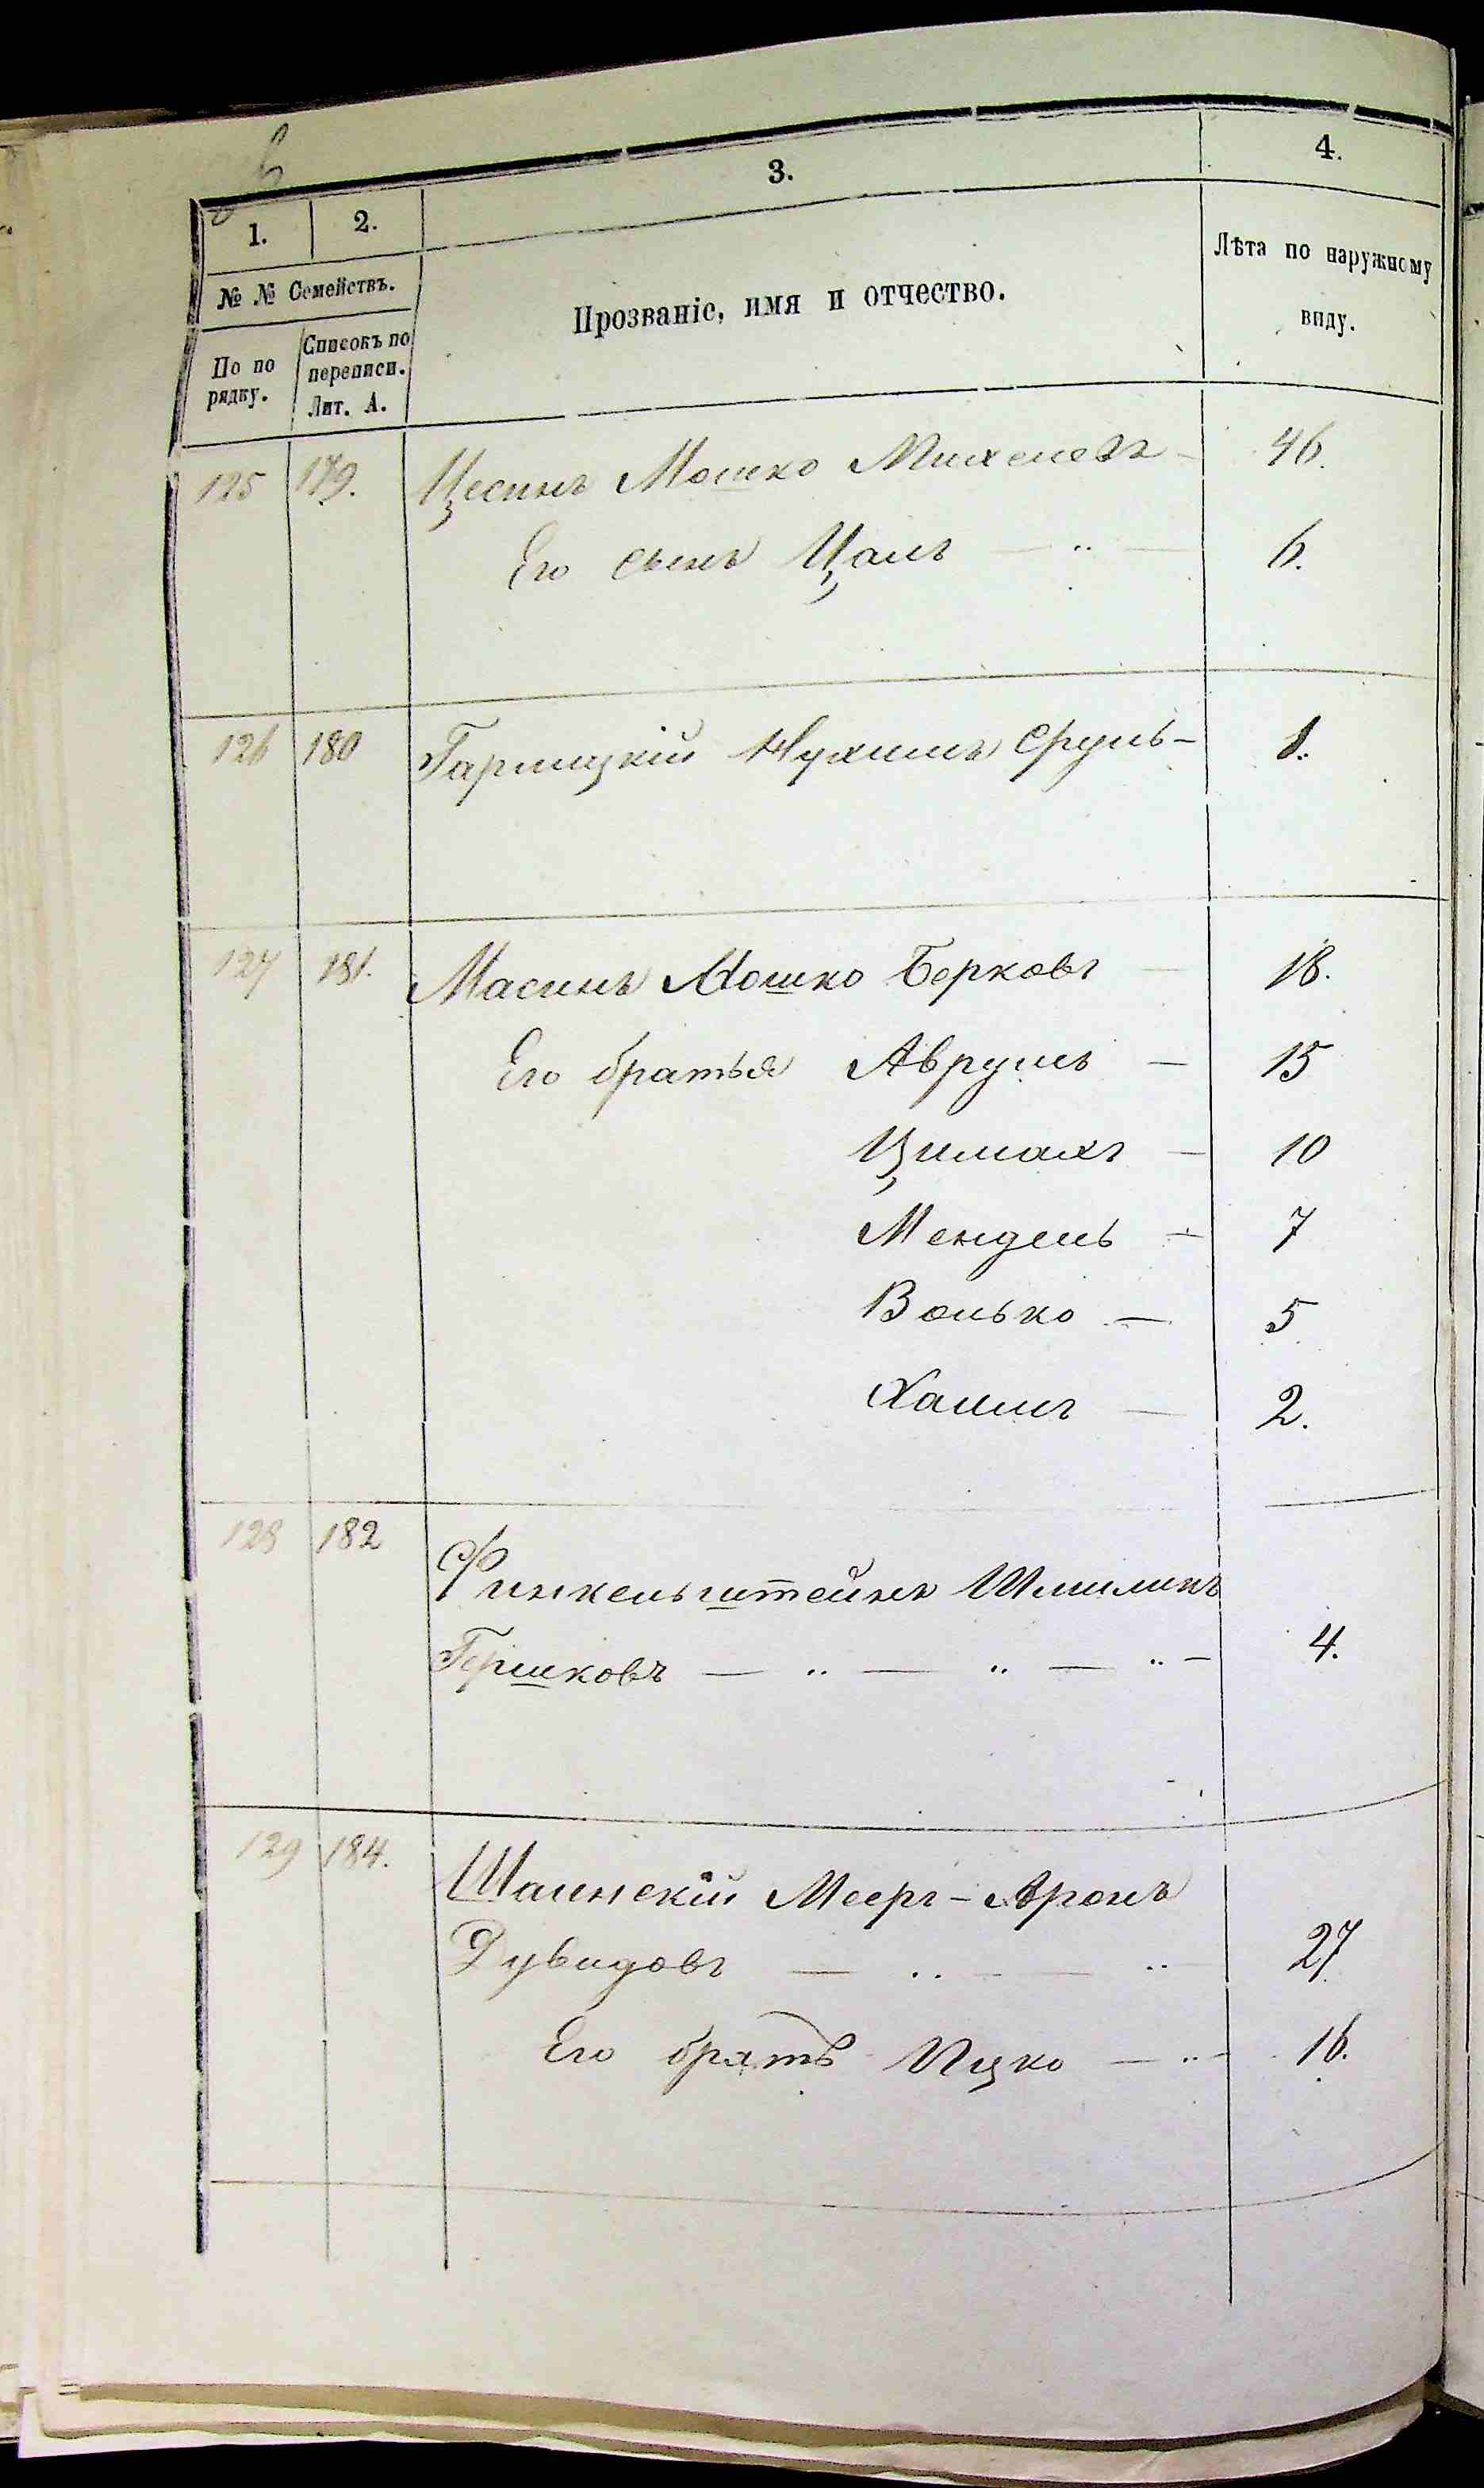 1. 2. 3. 4.
№ № Семействъ.
По по рядку.
Списокъ по переписи. Лит. А.
Прозваніе, имя и отчество.
Лѣта по наружному виду.
125 179. Цесинъ Мошко Михелевъ - 46.
Его сынъ Цалъ — „ — 6.
126 180 Гарлицкій Нухимъ Сруль - 1.
127 181. Масинъ Мошко Берковъ — 18.
Его братья Аврумъ — 15
Цимахъ — 10
Мендель — 7
Волько — 5
Хаимъ — 2.
128 182 Финкельштейнъ Шмиликъ
Гершковъ — „ — „ — „ - 4.
129 184. Шаинскій Мееръ-Аронъ
Дувидовъ — „ — „ 27
Его братъ Ицко — „ - 16.